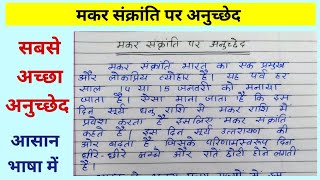 मकर संक्रांति पर अनुच्छेद
सबसे
अच्छा
अनुच्छेद
आसान
भाषा में
मकर संक्रांति पर अनुच्छेद
मकर संक्रांति भारत का एक प्रमुख
और लोकप्रिय त्योहार है। यह पर्व हर
साल 14 या 15 जनवरी को मनाया
जाता है। ऐसा माना जाता है कि इस
दिन सूर्य धनु राशि से मकर राशि में
प्रवेश करता है इसलिए मकर संक्रांति
कहते हैं। इस दिन सूर्य उत्तरायण की
और बढ़ता है, जिसके परिणामस्वरूप दिन
धीरे-धीरे लम्बे और रातें छोटी होने लगती
है।